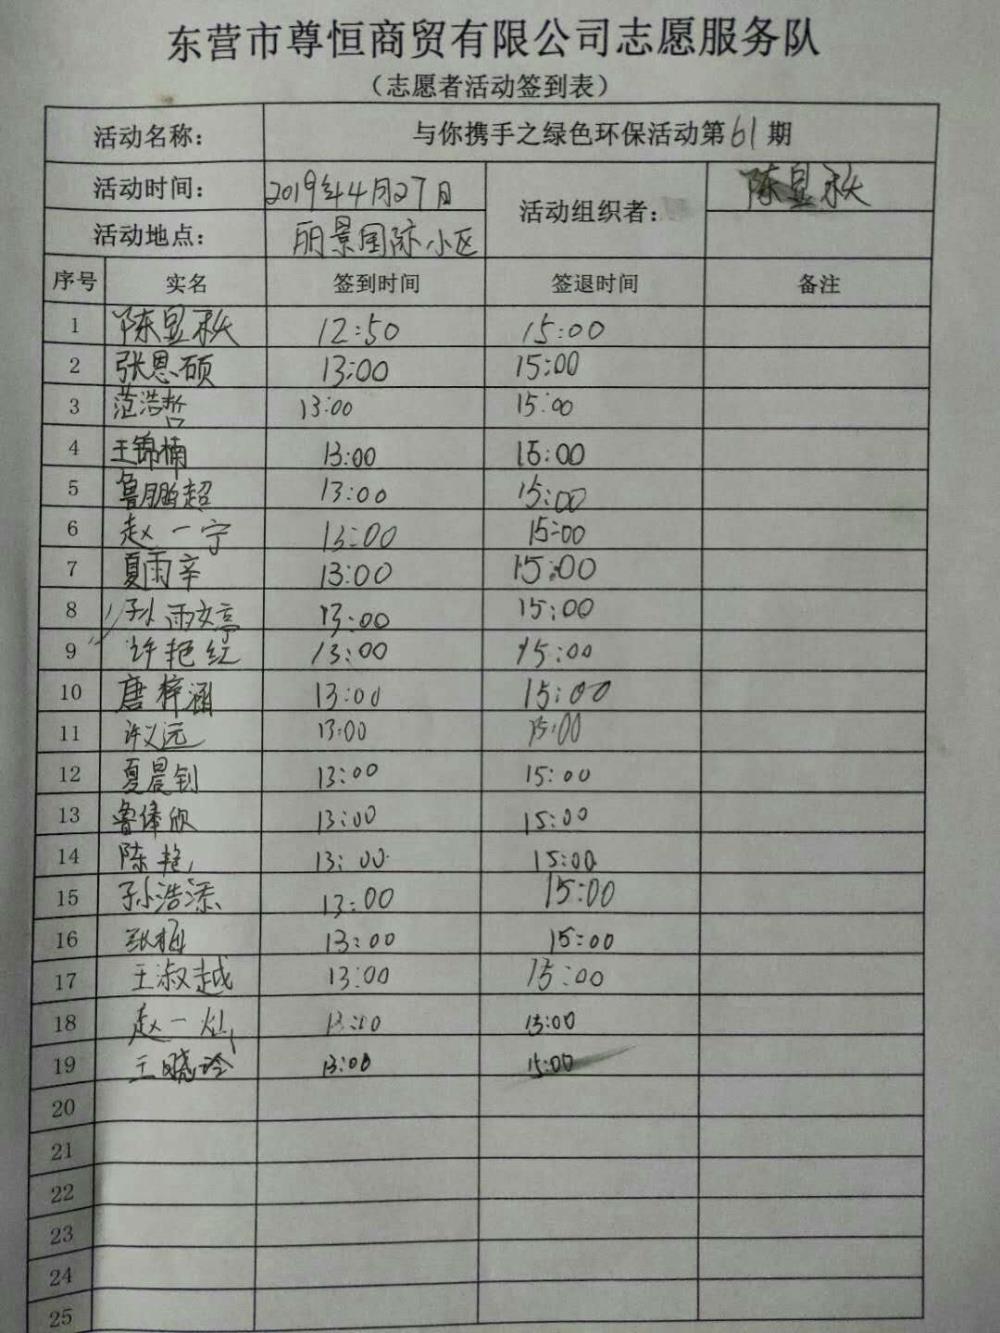 东营市尊恒商贸有限公司志愿服务队
（志愿者活动签到表）
活动名称： 与你携手之绿色环保活动第61期
活动时间： 2019年4月27日 活动组织者： 陈显秋
活动地点： 丽景国际小区
序号 实名 签到时间 签退时间 备注
1 陈显秋 12:50 15:00
2 张恩硕 13:00 15:00
3 范浩哲 13:00 15:00
4 王锦楠 13:00 15:00
5 鲁鹏超 13:00 15:00
6 赵一宁 13:00 15:00
7 夏雨辛 13:00 15:00
8 孙雨文亭 13:00 15:00
9 许艳红 13:00 15:00
10 唐梓涵 13:00 15:00
11 许义远 13:00 15:00
12 夏晨钊 13:00 15:00
13 鲁俸欣 13:00 15:00
14 陈艳 13:00 15:00
15 孙浩添 13:00 15:00
16 张梅 13:00 15:00
17 王淑越 13:00 15:00
18 赵一灿 13:10 15:00
19 王晓玲 13:00 15:00
20
21
22
23
24
25